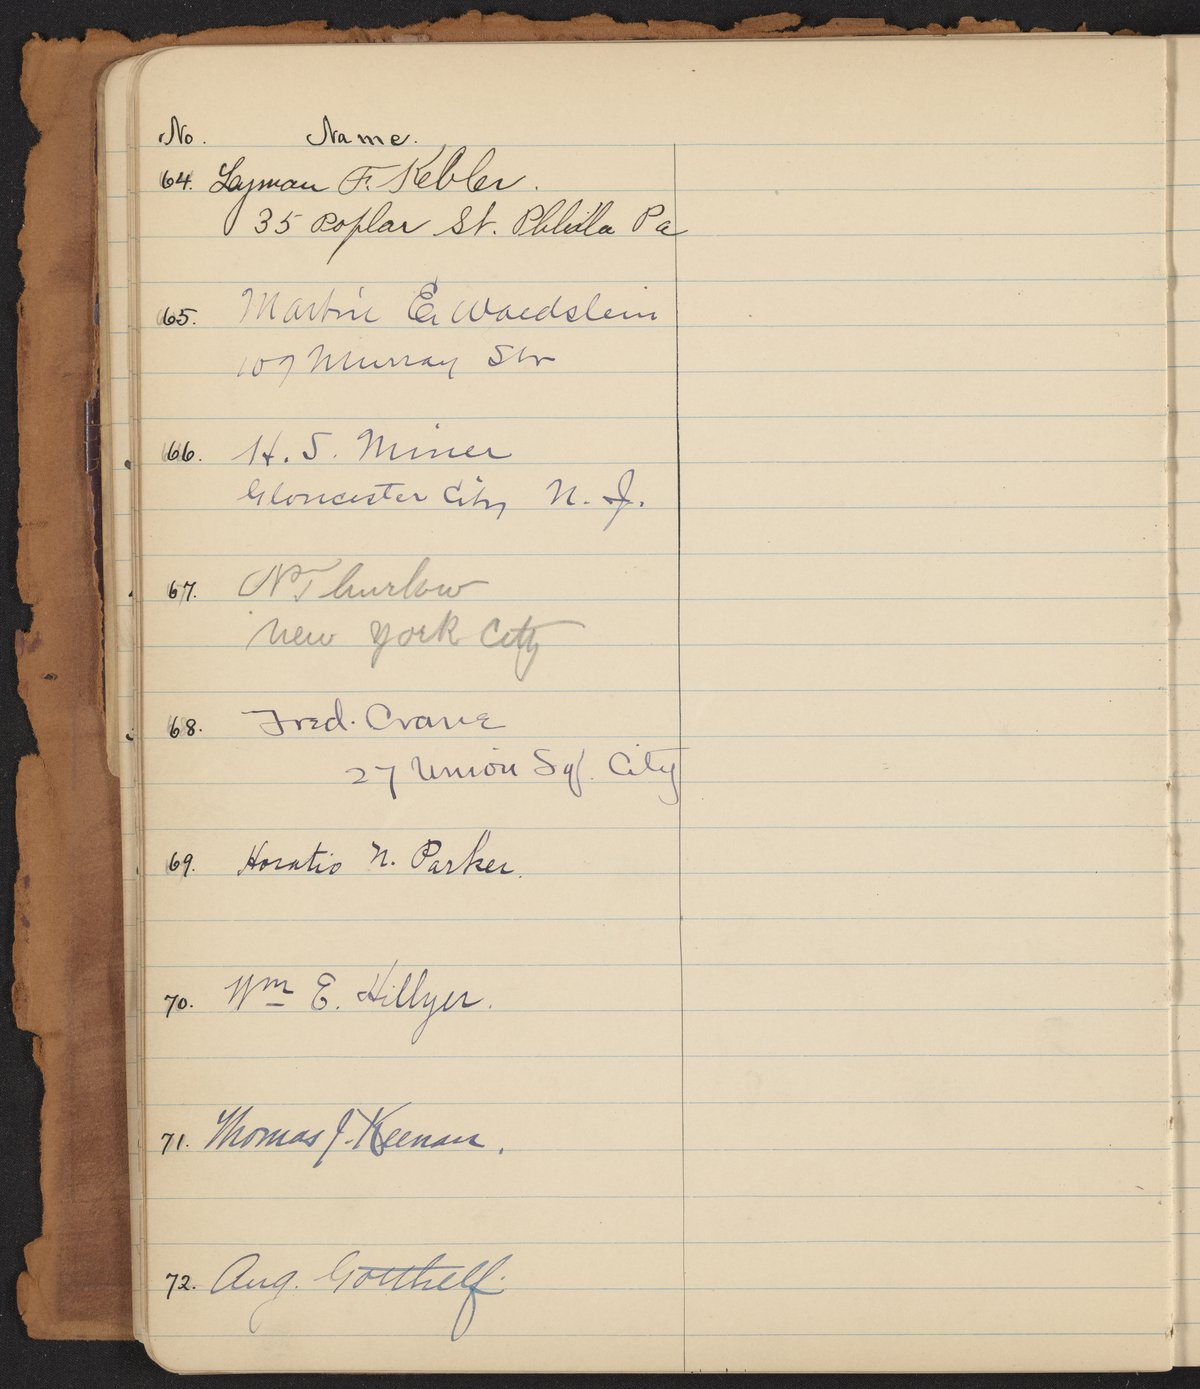 No. Name.
64. Lyman F. Kebler.
35 Poplar St. Phlidla Pa
65. Martin E. Waldstein
107 Murray Str
66. H. S. Miner
Gloucester City N. J.
67. N Thurlow
New York City
68. Fred. Crane
27 Union Sq. City
69. Horatio N. Parker.
70. Wm E. Hillyer.
71. Thomas J. Keenan.
72. Aug. Gotthelf.